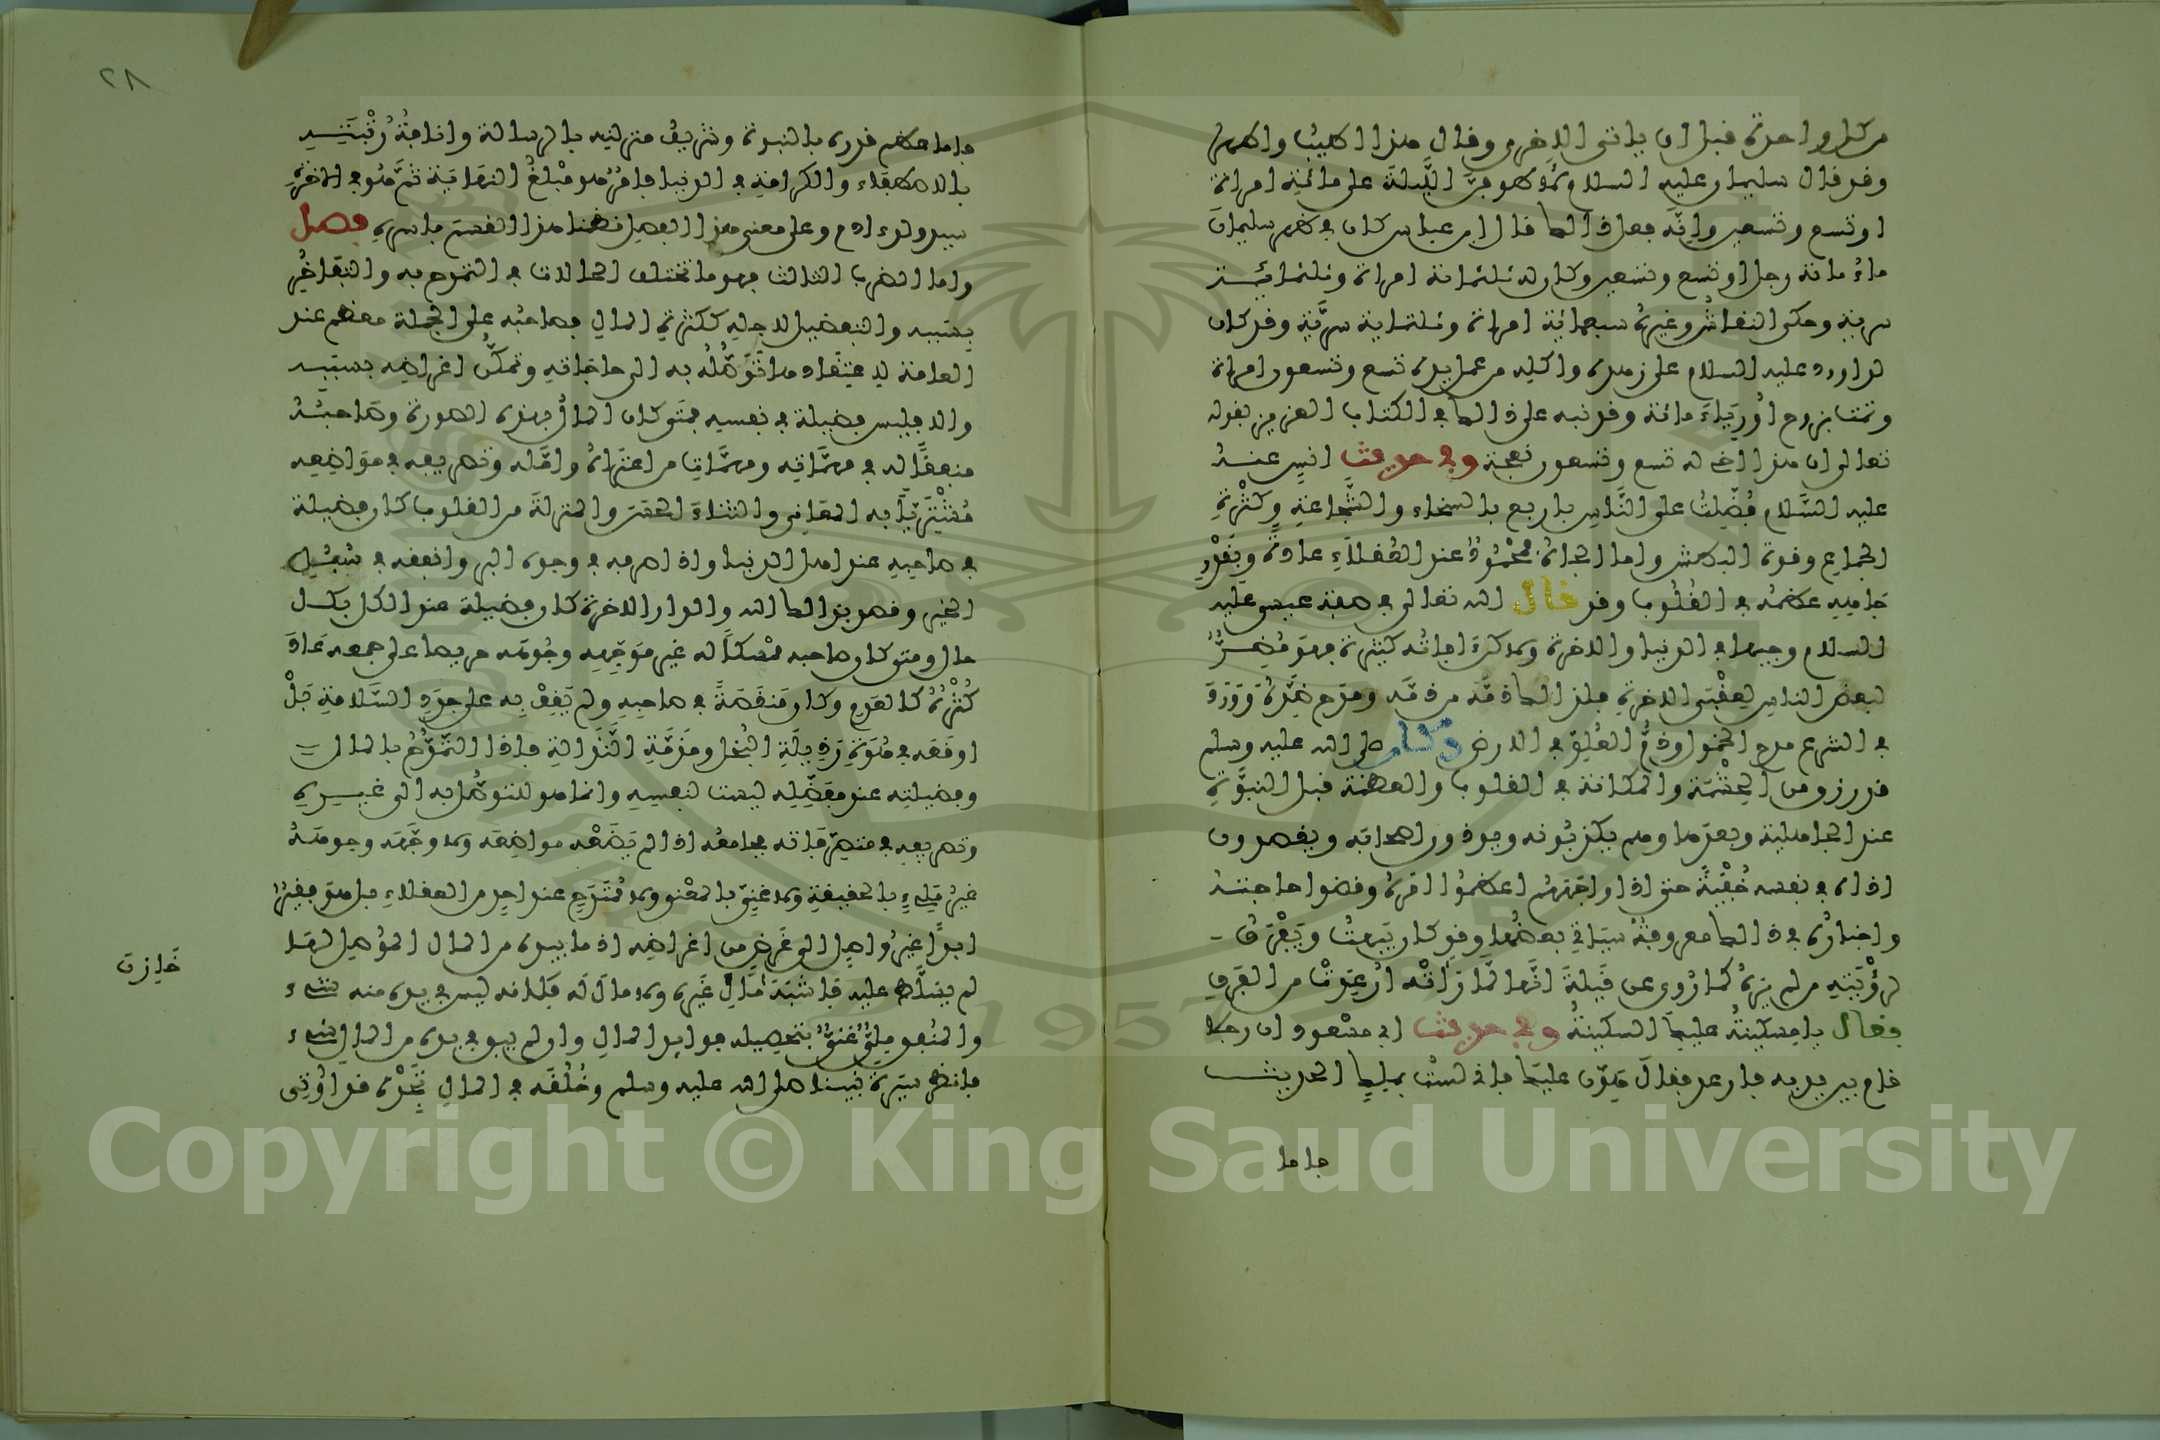 من كل واحدة قبل ان ياتي الاخرى وقال هذا اطيب واطهر
وقد قال سليمان عليه السلام لأطوفن الليلة على مائة امراة
او تسع وتسعين وانه فعل ذالك قال ابن عباس كان في ظهر سليمان
ماء مائة رجل او تسع وتسعين وكان له ثلثمائة امراة وثلثمائة
سرية وحكى النقاش وغيره سبعمائة امراة وثلثماية سرية وقد كان
لداوود عليه السلام على زهده واكله من عمل يده تسع وتسعون امراة
وتمت بزوج أورياء مائة وقد نبه على ذالك في الكتاب العزيز بقوله
تعالى ان هذا اخي له تسع وتسعون نعجة وفي حديث انس عنه
عليه السلام فضلت على الناس باربع بالسخاء والشجاعة وكثرة
الجماع وقوة البطش واما الجاه فمحمود عند العقلاء عادة وبقدر
جاهه عظمه في القلوب وقد قال الله تعالى في صفة عيسى عليه
السلام وجيها في الدنيا والاخرة ولاكن افاته كثيرة فهو مضر
لبعض الناس لعقبى الاخرة فلذالك ذمه من ذمه ومدح ضده وورد
في الشرع مدح الخمول وذم العلو في الارض وكان صلى الله عليه وسلم
قد رزق من الحشمة والمكانة في القلوب والعظمة قبل النبوة
عند الجاهلية وبعدها وهم يكذبونه ويوذون اصحابه ويقصدون
اذاه في نفسه خفية حتى اذا واجههم اعظموا امره وقضوا حاجته
واخباره في ذالك معروفة سياتي بعضها وقد كان يبهت ويفرق
لرؤيته من لم يره كما روي عن قيلة انها لما راته ارعدت من الفرق
فقال يا مسكينة عليك السكينة وفي حديث ابي مسعود ان رجلا
قام بين يديه فارعد فقال هون عليك فاني لست بملك الحديث
فاما
٢٨
فاما عظم قدره بالنبوة وشريف منزلته بالرسالة وانافة رتبته
بالاصطفاء والكرامة في الدنيا فامر هو مبلغ النهاية ثم هو في الاخرة
سيد ولد ادم وعلى معنى هذا الفصل نظمنا هذا القسم باسره فصل
واما الضرب الثالث فهو ما تختلف الحالات في التمدح به والتفاخر
بسببه والتفضيل لاجله ككثرة المال فصاحبه على الجملة معظم عند
العامة لاعتقادها توصله به الى حاجاته وتمكن اغراضه بسببه
والا فليس فضيلة في نفسه فمتى كان المال بهذه الصورة وصاحبه
منفقا له في مهماته ومهمات من اعتراه وامله وتصريفه في مواضعه
مشتريا به المعالي والثناء الحسن والمنزلة من القلوب كان فضيلة
في صاحبه عند اهل الدنيا واذا صرفه في وجوه البر وانفقه في سبل
الخير وقصد بذالك الله والدار الاخرة كان فضيلة عند الكل بكل
حال ومتى كان صاحبه ممسكا له غير موجهه وجوهه حريصا على جمعه عاد
كثره كالعدم وكان منقصة في صاحبه ولم يقف به على جدد السلامة بل
اوقعه في هوة رذيلة البخل ومذمة النذالة فاذا التمدح بالمال
وفضيلته عند مفضله ليست لنفسه وانما هو للتوصل به الى غيره
وتصريفه في متصرفاته فجامعه اذا لم يضعه مواضعه ولا وجهه وجوهه
غير مليء بالحقيقة ولا غني بالمعنى ولا ممتدح عند احد من العقلاء بل هو فقير
ابدا غير واصل الى غرض من اغراضه اذ ما بيده من المال الموصل لها
لم يسلط عليه فاشبه خازن مال غيره ولا مال له فكانه ليس في يده منه شيء
خازن
والمنفق ملي غني بتحصيله فوايد المال وان لم يبق في يده من المال شيء
فانظر سيرة نبينا صلى الله عليه وسلم وخلقه في المال تجده قد اوتي